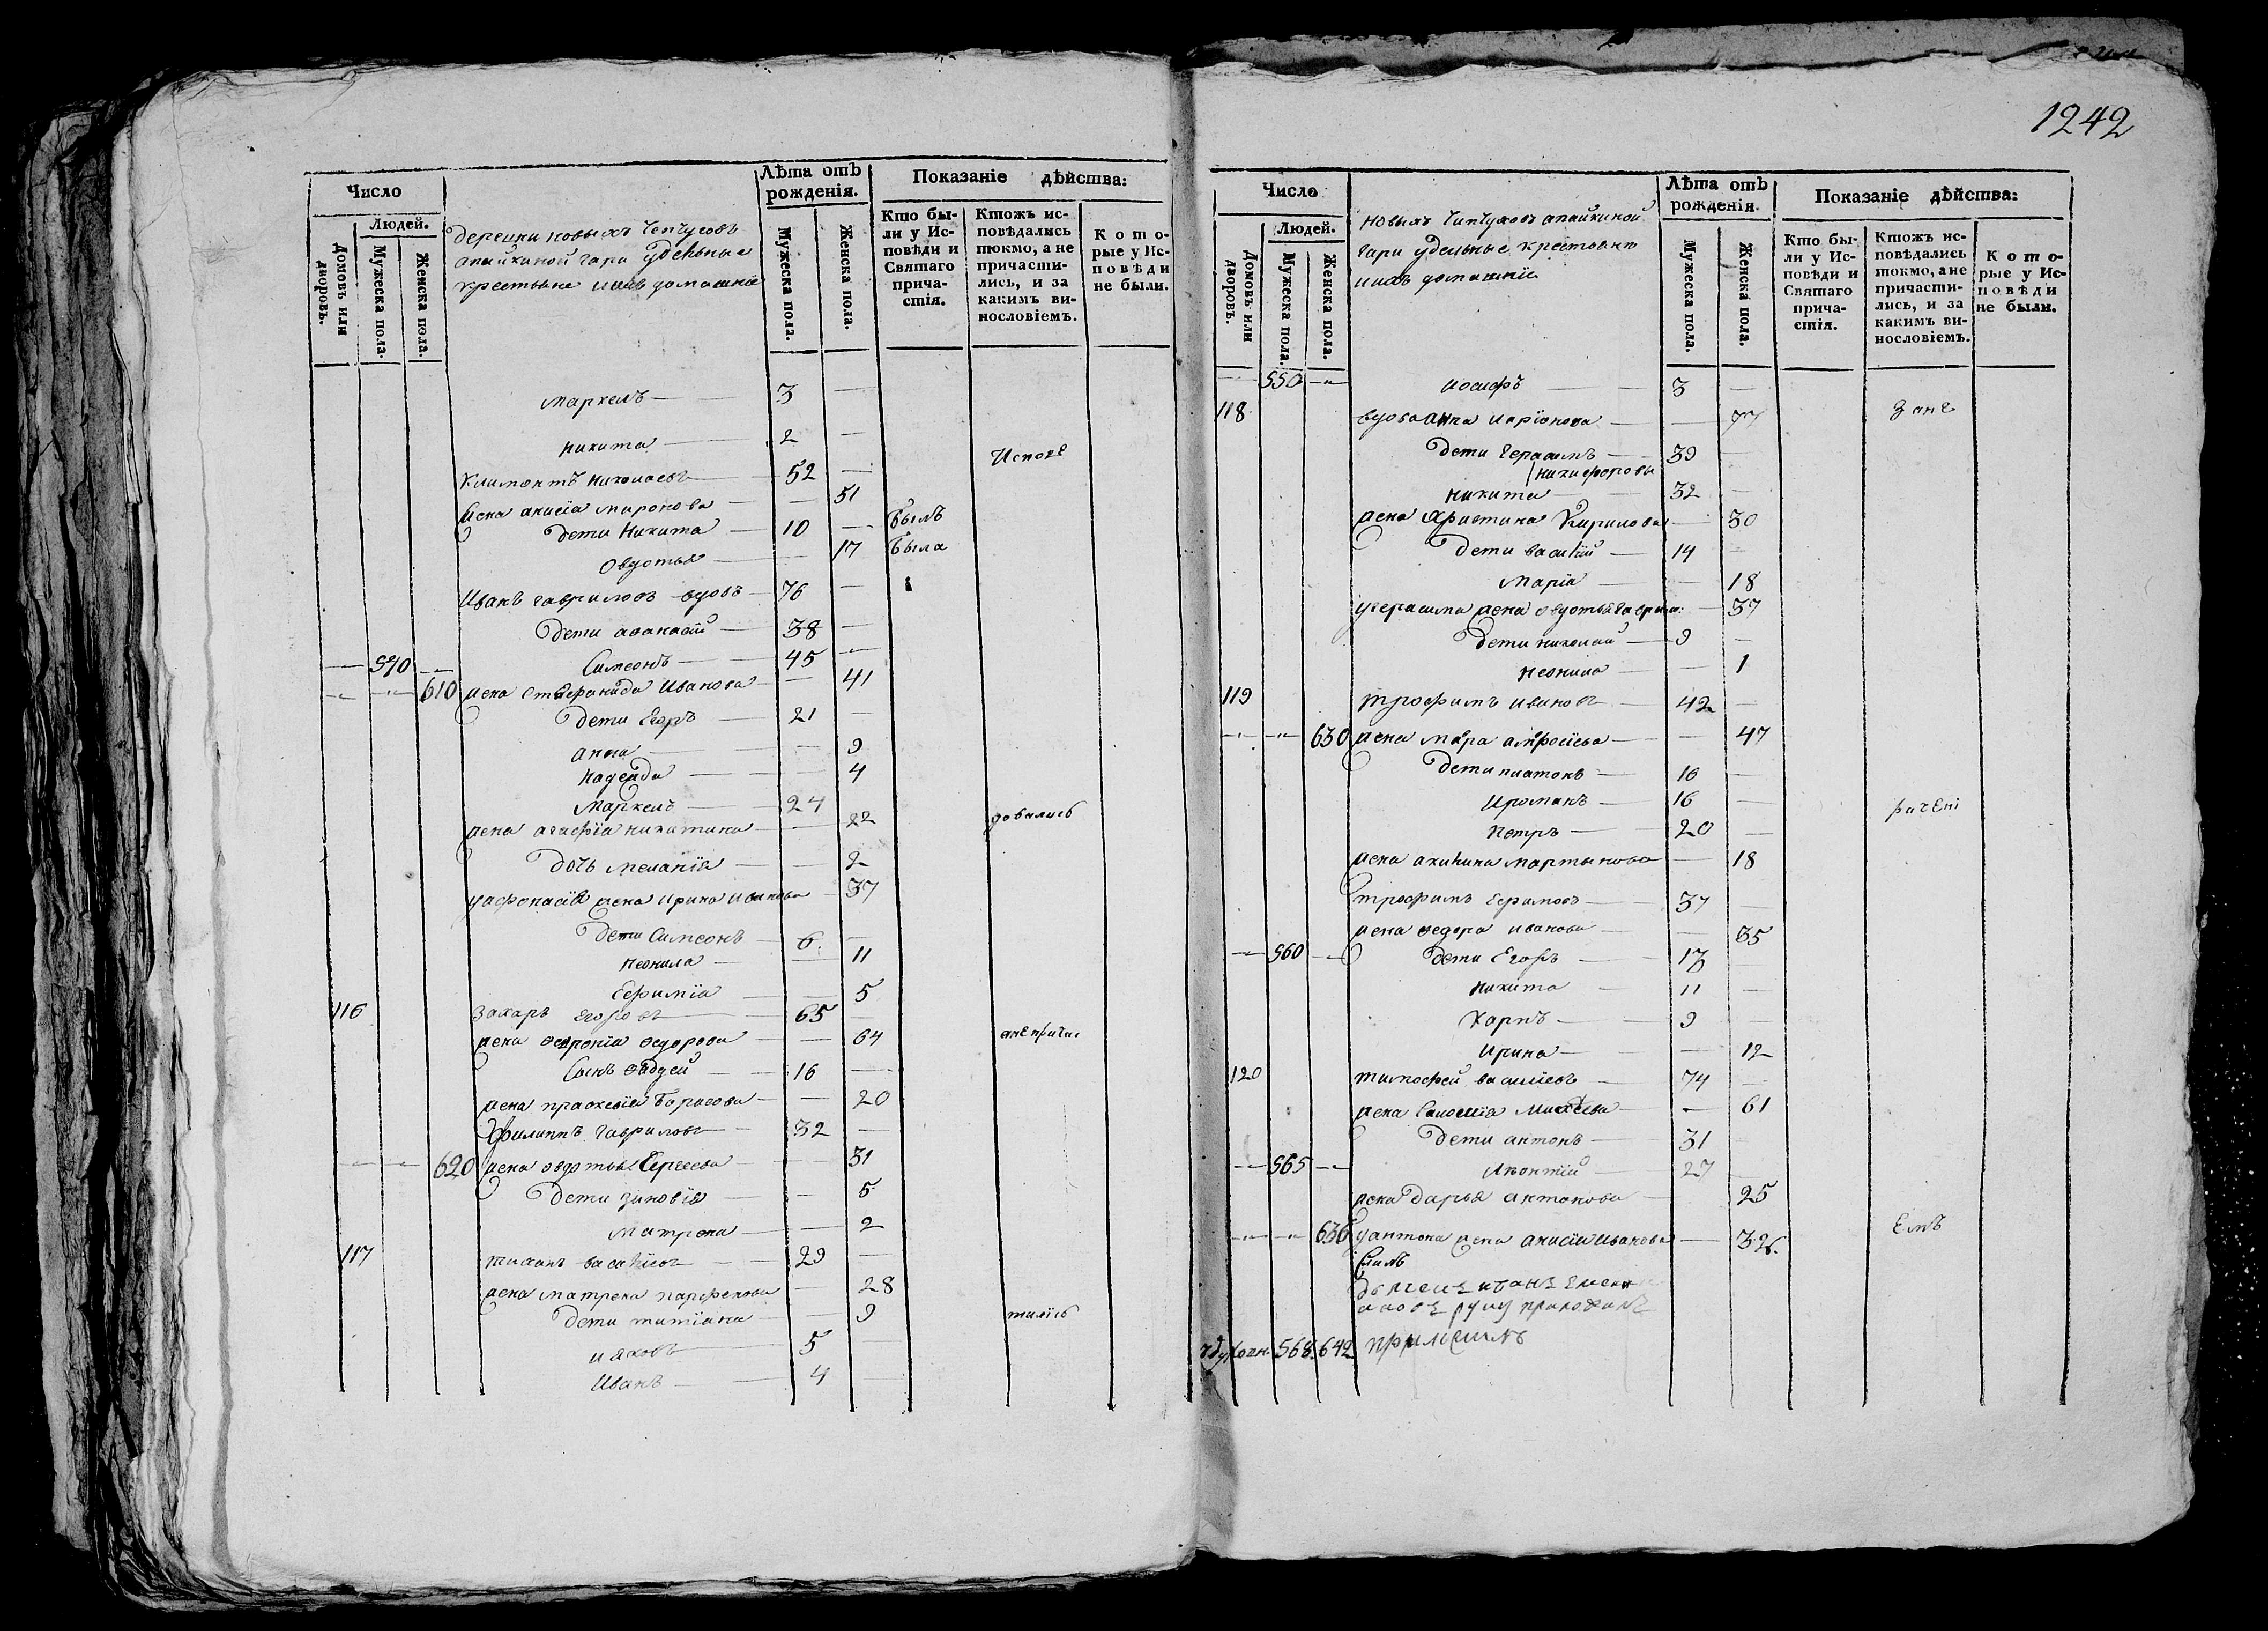 1242
Число
Людей.
Домовъ или дворовъ.
Мужеска пола.
Женска пола.
деревни новыхъ Чепчуговъ
апайкиной гари удельные
крестьяне и ихъ домашніе
Лѣта отъ рожденія.
Мужеска пола.
Женска пола.
Показаніе дѣйства:
Кто бы-
ли у Ис-
повѣди и
Святаго
прича-
стія.
Ктожъ ис-
повѣдались
токмо, а не
причасти-
лись, и за
какимъ ви-
нословіемъ.
К о т о-
рые у Ис-
п о в ѣ д и
не были.
маркелъ — 3 —
никита — 2 —
Испове
климонтъ николаевъ — 52 —
жена анисia миронова — — 51
дети Никита — 10 — былъ
овдотья — — 17 была
Иванъ гавриловъ вдовъ — 76 —
дети афанасiй — 38 —
— 540 — Симеонъ — 45 —
— — 610 жена стефанида Иванова — — 41
дети Егоръ — 21 —
анна — — 9
надежда — — 4
Маркелъ — 24
довались
жена агафiя никитина — — 22
дочь меланiя — — 2
у афонасiя жена ирина иванова — 37
дети Симеонъ — 6 —
неонила — — 11
Ефимiя — — 5
116 Захаръ егоровъ — 65 —
жена февронiя федорова — — 64
анепричас
Сынъ фадей — 16 —
жена прасковiя борисова — — 20
филиппъ гавриловъ — 32 —
— — 620 жена овдотья Сергеева — — 31
дети зиновiя — — 5
матрона — — 2
117 василiевъ — 29 —
жена матрена парфенова — 28
дети татiана — — 9
тилiсь
иаковъ — 5 —
Иванъ — 4
Число
Людей.
Домовъ или дворовъ.
Мужеска пола.
Женска пола.
новыхъ Чипчуговъ апайкиной
гари удельные крестьяне
и ихъ домашнiе
Лѣта отъ рожденія.
Мужеска пола.
Женска пола.
Показаніе дѣйства:
Кто бы-
ли у Ис-
повѣди и
Святаго
прича-
стія.
Ктожъ ис-
повѣдались
токмо, а не
причасти-
лись, и за
какимъ ви-
нословіемъ.
К о т о-
рые у Ис-
п о в ѣ д и
не были.
— 550 — иосифъ — 3 —
118 вдова анна ларiонова — — 77
дети герасимъ — 39 —
никифоровы
никита — 32 —
жена христина Кирилова — 30
дети василiй — 14 —
марiя — — 18
у герасима жена овдотья гаврил: — 37
дети николай — 9 —
неонила — — 1
119 трофимъ ивановъ — 42 —
— — 630 жена — — 47
дети платонъ — 16 —
ироманъ — 16 —
петръ — 20 —
жена акилина мартынова — 18
трофимъ ефимовъ — 37 —
жена федора иванова — — 35
— 560 — дети Егоръ — 17 —
никита — 11 —
карпъ — 9 —
ирина — — 12
120 тимофей василiевъ — 74 —
жена — 61
дети антонъ — 31 —
— 565 — — 27
жена дарья антонова — 25
— — 636 у антона жена анисiя иванова — 32
емъ
568. 642